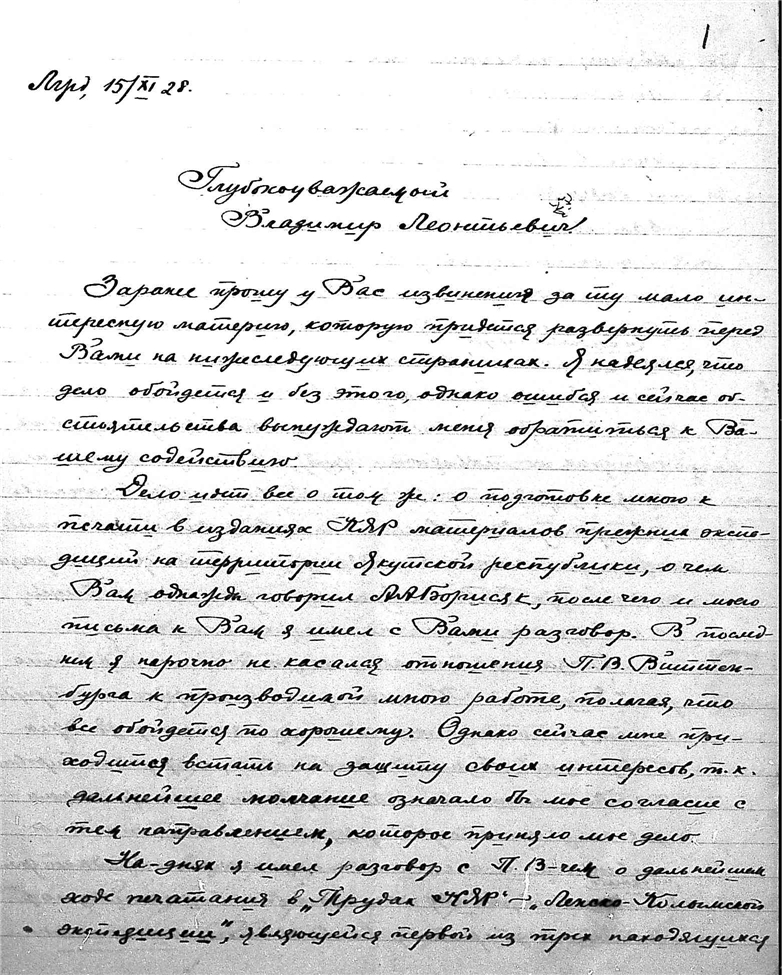 1
Лгрд, 15/XI 28.
Глубокоуважаемый
Владимир Леонтьевич!
Заранее прошу у Вас извинения за ту мало ин-
тересную материю, которую придется развернуть перед
Вами на нижеследующих страницах. Я надеялся, что
дело обойдется и без этого, однако ошибся и сейчас об-
стоятельства вынуждают меня обратиться к Ва-
шему содействию.
Дело идт все о том ж: о подготовке мною к
печати в изданиях КЯР материалов прежних экспе-
диций на территории Якутской республики, о чем
Вам однажды говорил А.А.Борисяк, после чего и моего
письма к Вам я имел с Вами разговор. В послед-
нем я нарочно не касался отношения П.В. Виттен-
бурга к производимой мною работе, полагая, что
все обойдется по хорошему. Однако сейчас мне при-
ходится встать на защиту своих интересов, т.к.
дальнейшее молчание означало бы мое согласие с
тем направлением, которое приняло мое дело.
На-днях я имел разговор с П.В-чем о дальнейшем
ходе печатания в „Трудах КЯР" – „Ленско-Колымской
экспедиции", являющейся первой из трех находящихся